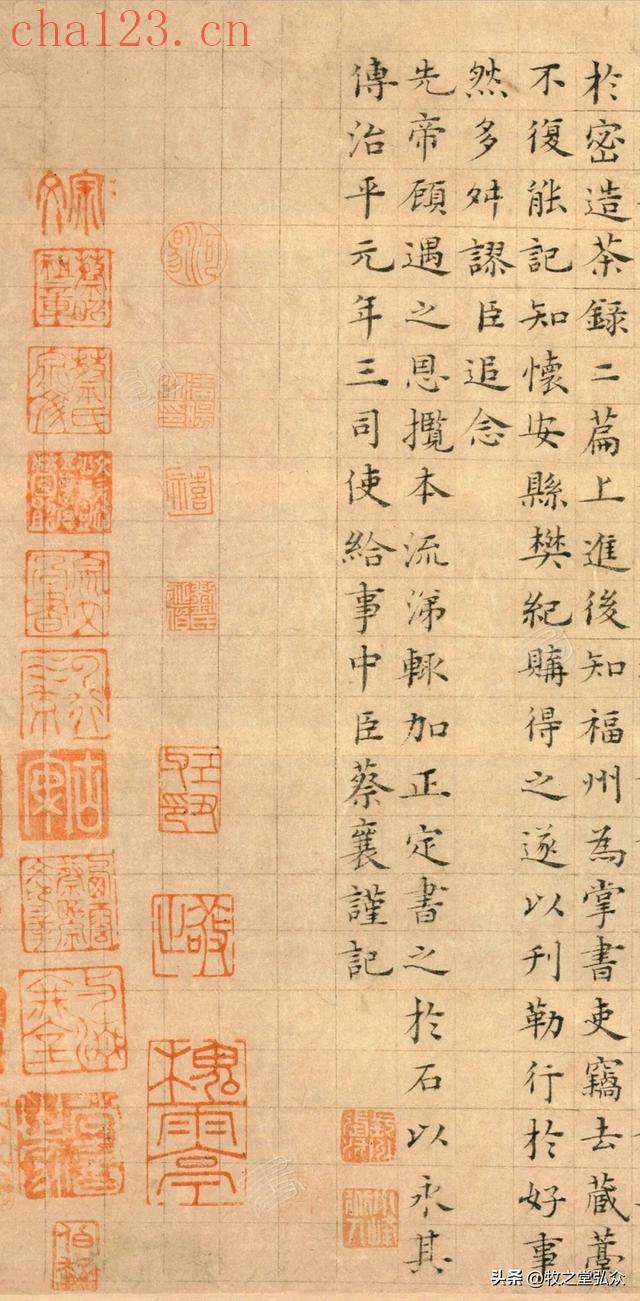 cha123.cn
於密造茶録二篇上進後知福州為掌書吏竊去蔵藁
不復能記知懷安縣樊紀購得之遂以刊勒行於好事
然多舛謬臣追念
先帝顧遇之恩攬本流涕輒加正定書之於石以永其
傳治平元年三司使給事中臣蔡襄謹記
槐雨亭
头条 @牧之堂弘众